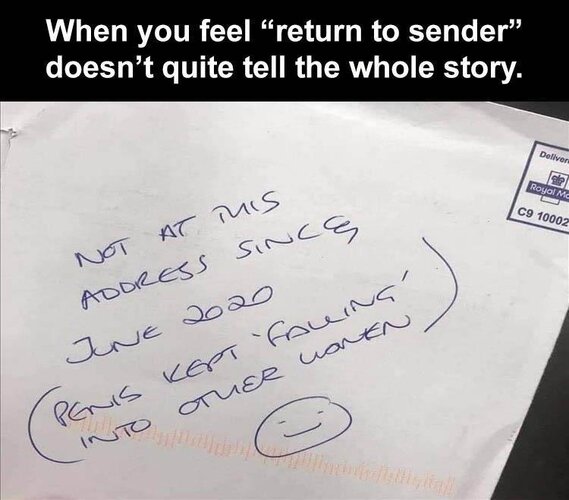 When you feel “return to sender”
doesn’t quite tell the whole story.
Deliver
Royal Ma
C9 10002
NOT AT THIS
ADDRESS SINCE
JUNE 2020
(PENIS KEPT 'FALLING'
INTO OTHER WOMEN)